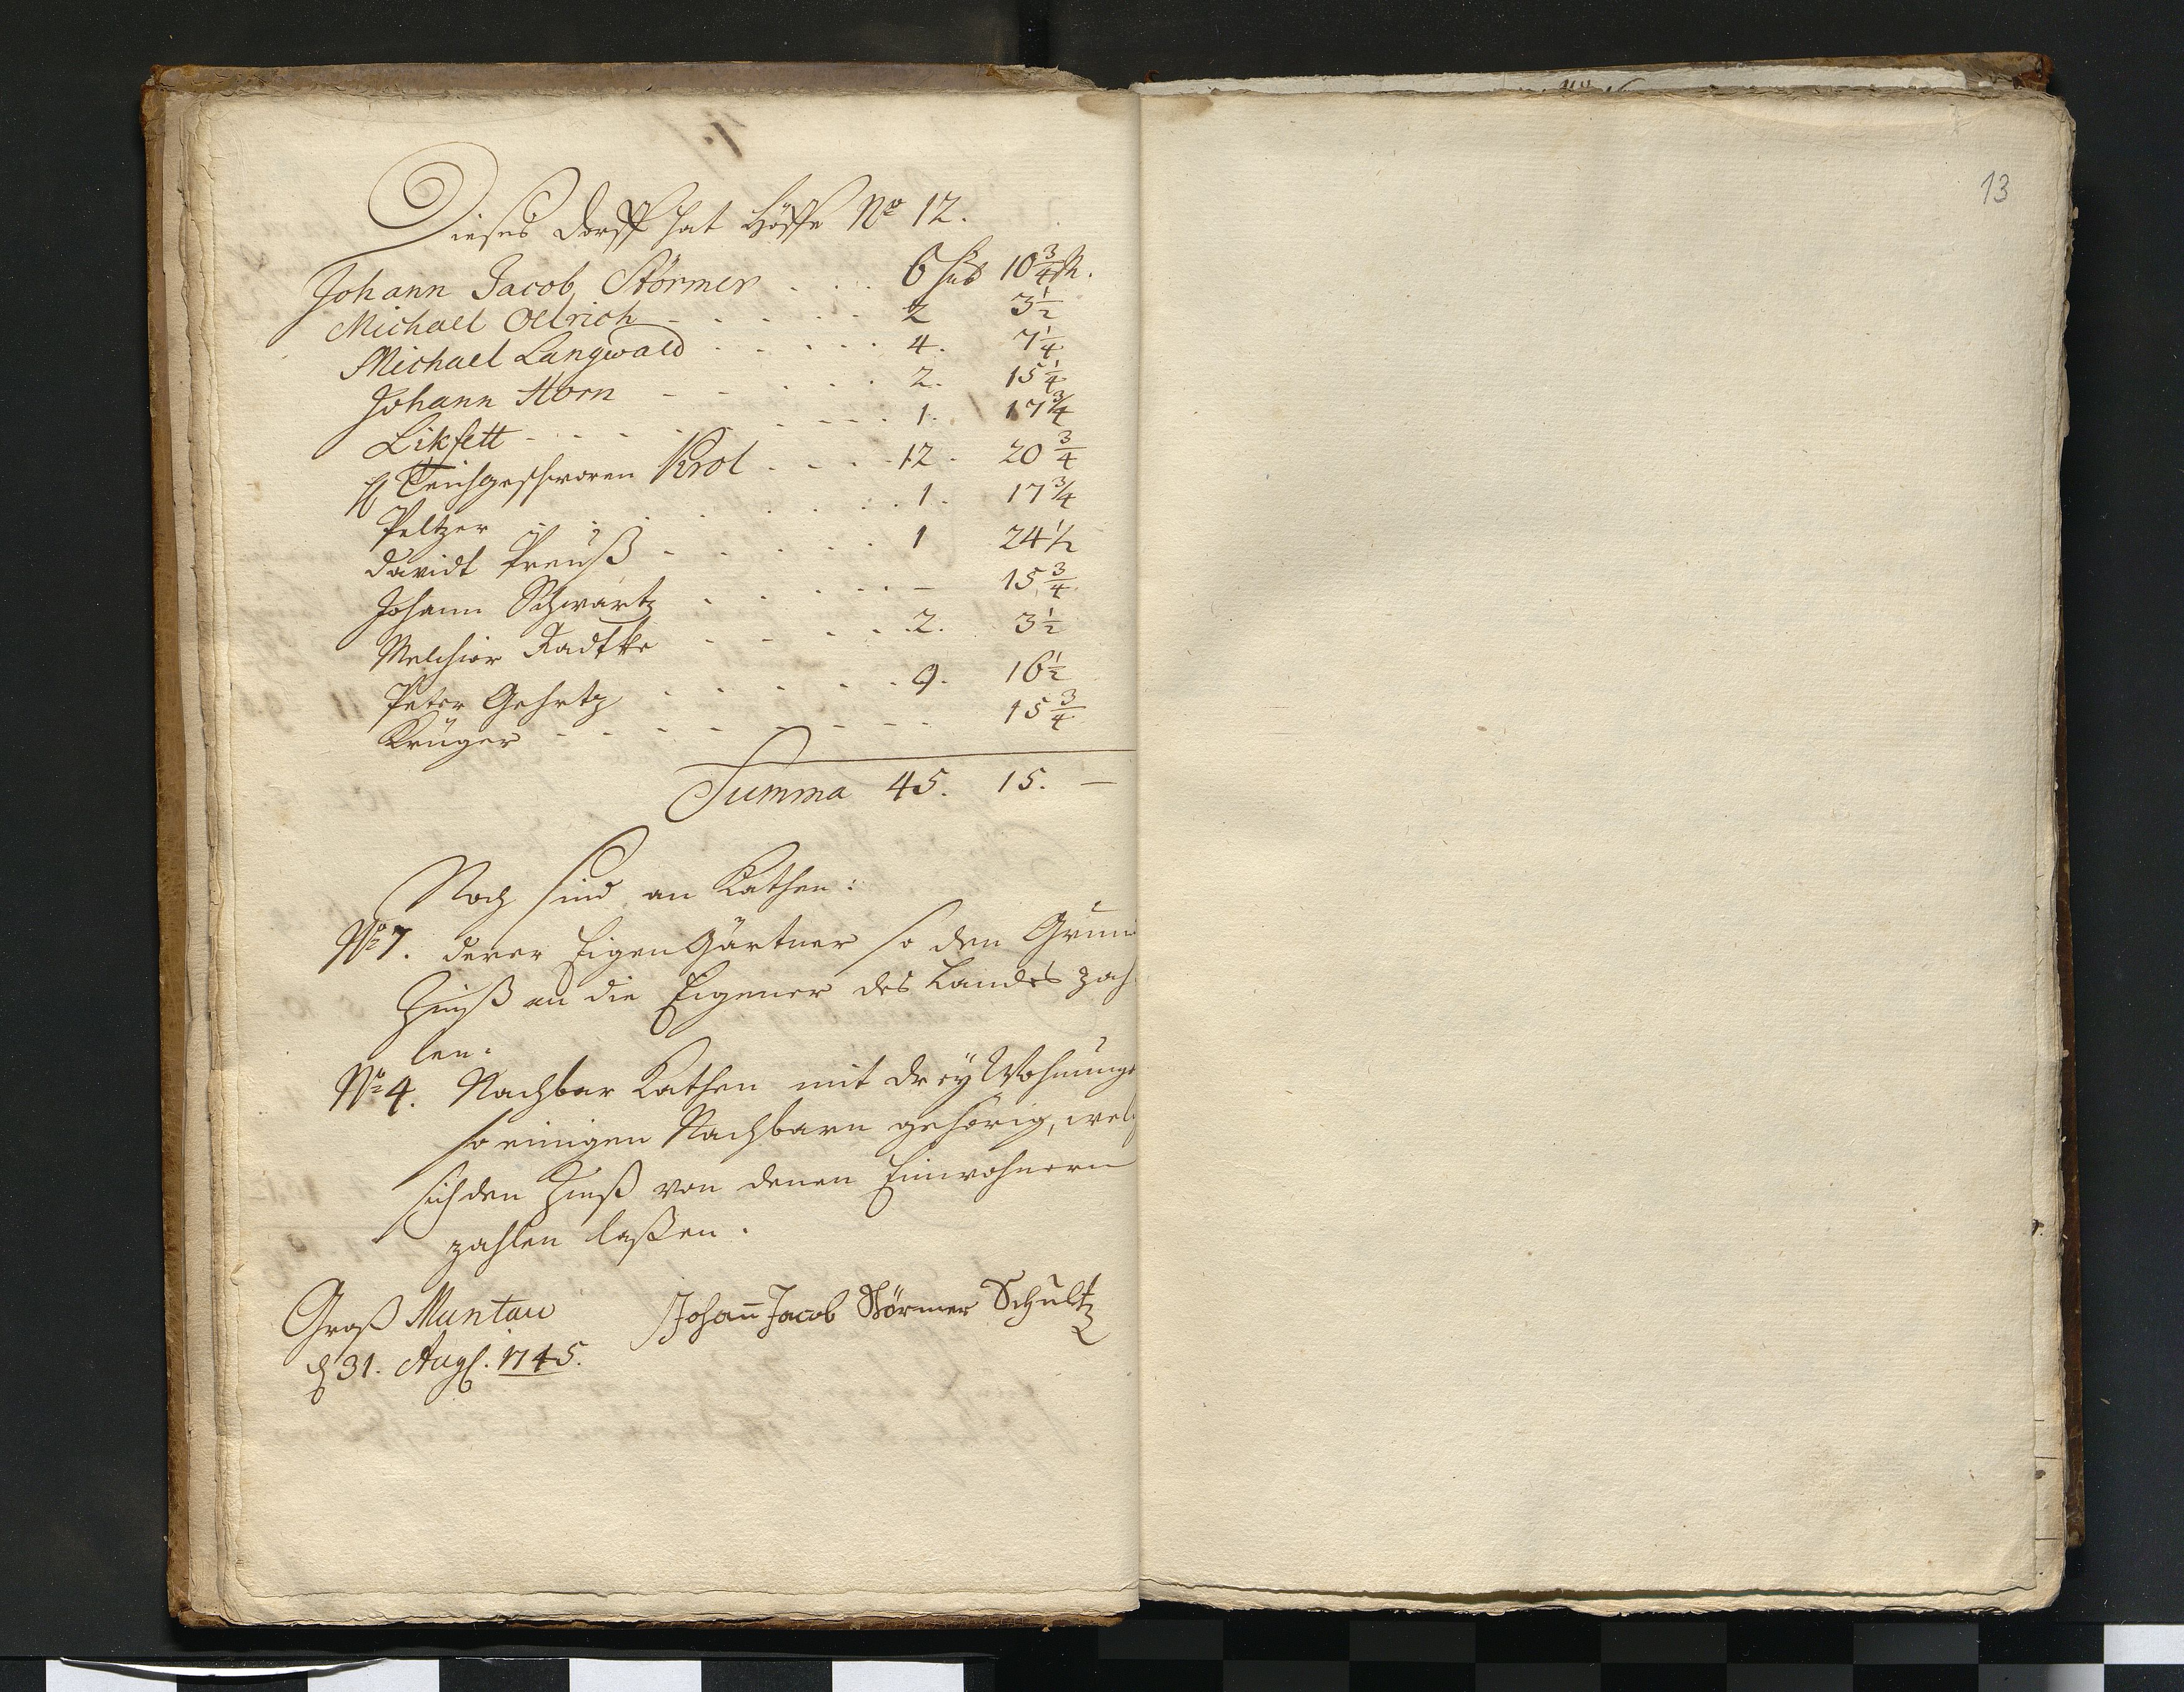 Dieses Dorff hat Höffe No 12.
Johann Jacob Störmer . . . 6 Hub 10 3/4 M.
Michael Oelrich - . . . . 2 3 1/2
Michael Langwald . . . . . 4. 7 1/4
Johann Horn - - . . . . 2. 15 1/4
Likfett - . . . . . - - . 1. 17 3/4
H Teichgeschworen Krol . . . . 12. 20 3/4
Peltzer . . . . . . . 1. 17 3/4
Davidt Preuß - . . . . . 1 24 1/2
Johann Schwartz . . . . . - 15 3/4
Melchior Radtke . - . . . 2. 3 1/2
Peter Gehrtz . . . . . . 9. 16 1/2
Krüger - - . - - - - - 15 3/4
Summa 45. 15. —
Noch sind an Kathen:
No 7. derer Eigen Gärtner so den Grun
Zinß an die Eigener des Landes zah
len.
No 4. Nachbar Kathen mit drey Wohnunge
so einigen Nachbarn gehörig, wel
sich den Zinß von denen Einwohnern
zahlen laßen.
Groß Muntau
Johann Jacob Störmer Schultz
d 31. Aug. 1745.
13